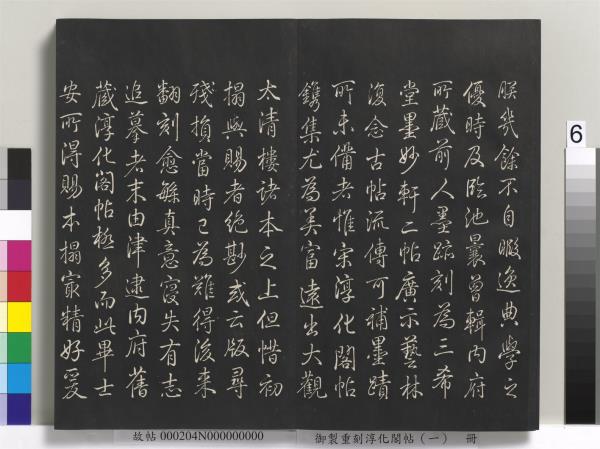 朕幾餘不自暇逸典學之
優時及臨池曩曾輯內府
所藏前人墨跡刻為三希
堂墨妙軒二帖廣示藝林
復念古帖流傳可補墨蹟
所未備者惟宋淳化閣帖
鐫集尤為美富遠出大觀
太清樓諸本之上但惜初
搨與賜者絕尠或云版尋
殘損當時已為難得後來
翻刻愈繇真意寖失有志
追摹者末由津逮內府舊
藏淳化閣帖極多而此畢士
安所得賜本搨㝡精好爰
6
故帖 000204N000000000
御製重刻淳化閣帖（一） 冊